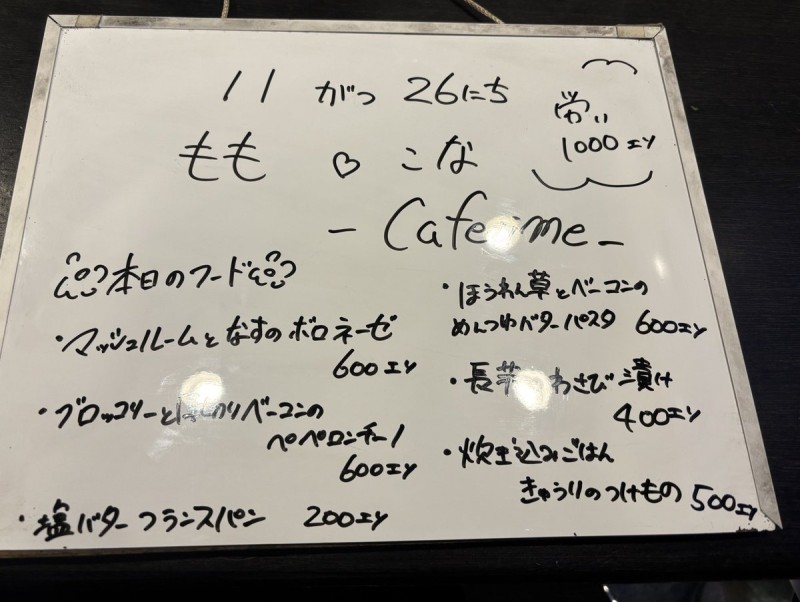 11 がつ 26にち
労い
1000エン
もも ♡ こな
- Cafe time -
本日のフード
・マッシュルームとなすのボロネーゼ
600エン
・ブロッコリーと ベーコンの
ペペロンチーノ
600エン
・塩バターフランスパン 200エン
・ほうれん草とベーコンの
めんつゆバターパスタ 600エン
・長芋 わさび漬け
400エン
・炊き込みごはん
きゅうりのつけもの 500エン